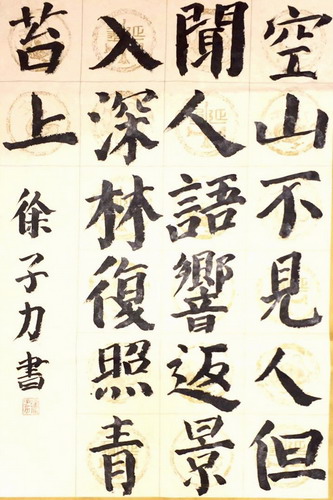 空山不見人但
聞人語響返景
入深林復照青
苔上
徐子力書